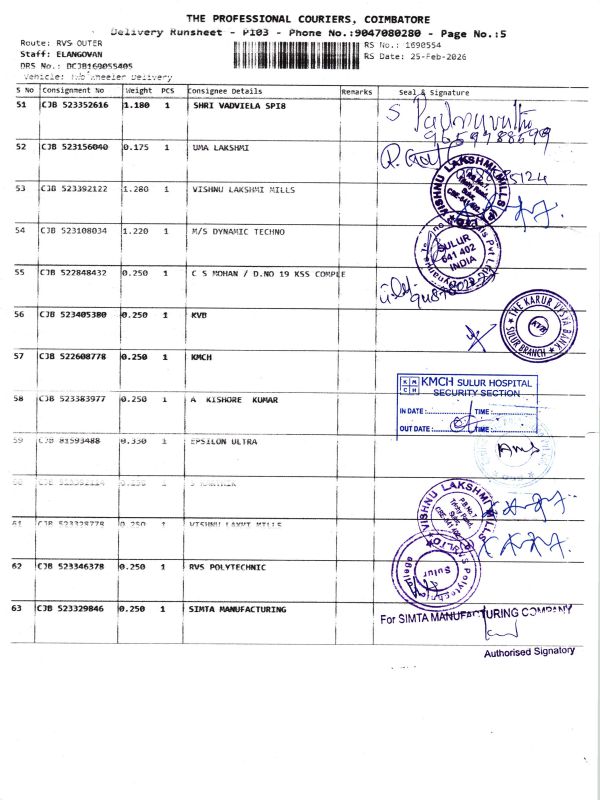 THE PROFESSIONAL COURIERS, COIMBATORE
Delivery Runsheet - PI03 - Phone No.:9047080280 - Page No.:5
Route: RVS OUTER
RS No.: 1690554
Staff: ELANGOVAN
RS Date: 25-Feb-2026
DRS No.: DCJB169055405
Vehicle: Two Wheeler Delivery
S No Consignment No Weight PCS Consignee Details Remarks Seal & Signature
51 CJB 523352616 1.180 1 SHRI VADVIELA SPI8
52 CJB 523156040 0.175 1 UMA LAKSHMI
53 CJB 523392122 1.280 1 VISHNU LAKSHMI MILLS
VISHNU LAKSHMI MILLS (P)
54 CJB 523108034 1.220 1 M/S DYNAMIC TECHNO
SULUR
641 402
INDIA
55 CJB 522848432 0.250 1 C S MOHAN / D.NO 19 KSS COMPLE
56 CJB 523405380 0.250 1 KVB
THE KARUR VYSYA BANK
SULUR BRANCH
57 CJB 522608778 0.250 1 KMCH
KMCH SULUR HOSPITAL
SECURITY SECTION
IN DATE : TIME :
OUT DATE : TIME :
58 CJB 523383977 0.250 1 A KISHORE KUMAR
59 CJB 81593488 0.330 1 EPSILON ULTRA
60
VISHNU LAKSHMI MILLS
61 CJB 523328778 0.250 1 VISHNU LAXMI MILLS
62 CJB 523346378 0.250 1 RVS POLYTECHNIC
Sulur
63 CJB 523329846 0.250 1 SIMTA MANUFACTURING
For SIMTA MANUFACTURING COMPANY
Authorised Signatory